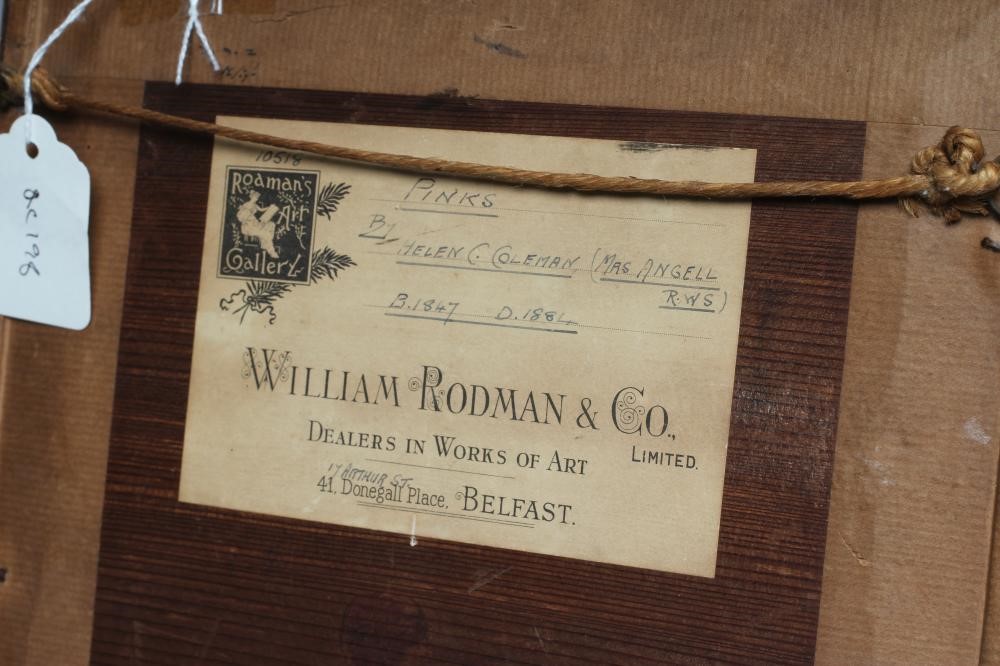 ac 198
10518
Rodman's
Art
Gallery
PINKS
By
HELEN C. COLEMAN (MRS ANGELL
R.WS)
B.1847 D.1884
WILLIAM RODMAN & CO.,
LIMITED.
DEALERS IN WORKS OF ART
17 ARTHUR ST.
41, Donegall Place, BELFAST.